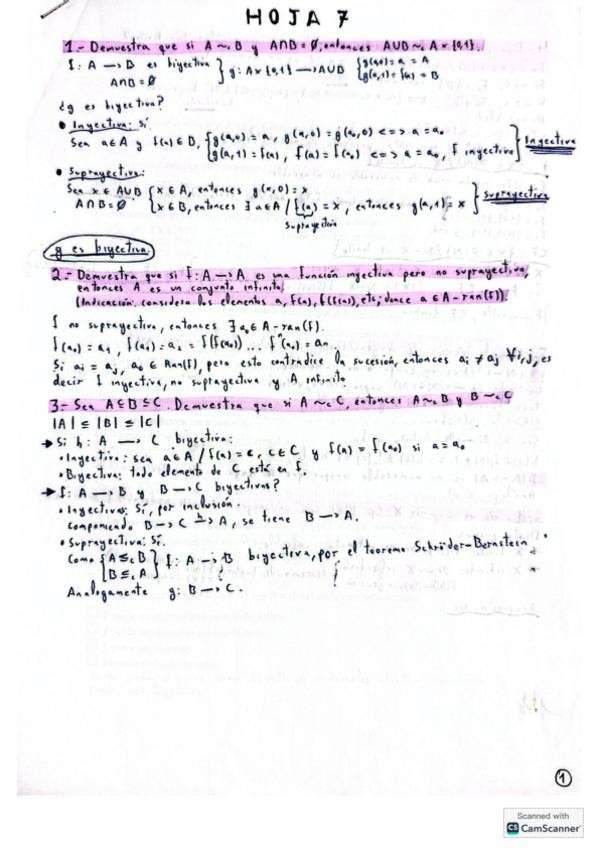 HOJA 7
1.- Demuestra que si A ~c B y A∩B = ∅, entonces A∪B ~c A × {0,1}.
f: A → B es biyectiva } g: A × {0,1} → A∪B { g(a,0) = a = A
A∩B = ∅ { g(a,1) = f(a) = B
¿g es biyectiva?
• Inyectiva: Sí.
Sea a ∈ A y f(a) ∈ B, { g(a,0) = a, g(a,0) = g(a₀,0) <=> a = a₀ } Inyectiva
{ g(a,1) = f(a), f(a) = f(a₀) <=> a = a₀, f inyectiva
• Suprayectiva:
Sea x ∈ A∪B { x ∈ A, entonces g(x,0) = x } suprayectiva
A∩B = ∅ { x ∈ B, entonces ∃ a ∈ A / f(a) = x, entonces g(a,1) = x
suprayectiva
g es biyectiva.
2.- Demuestra que si f: A → A es una función inyectiva pero no suprayectiva,
entonces A es un conjunto infinito.
(Indicación: considera los elementos a, f(a), f(f(a)), etc; donce a ∈ A - ran(f)).
f no suprayectiva, entonces ∃ a₀ ∈ A - ran(f).
f(a₀) = a₁, f(a₁) = a₂ = f(f(a₀)) ... fⁿ(a₀) = aₙ.
Si aᵢ = aⱼ, a₀ ∈ Ran(f), pero esto contradice la sucesión, entonces aᵢ ≠ aⱼ ∀i,j, es
decir f inyectiva, no suprayectiva y A infinito.
3.- Sea A ⊆ B ⊆ C. Demuestra que si A ~c C, entonces A ~c B y B ~c C
|A| ≤ |B| ≤ |C|
→ Si h: A → C biyectiva:
• Inyectiva: sea a ∈ A / f(a) = c, c ∈ C y f(a) = f(a₀) si a = a₀
• Biyectiva: todo elemento de C está en f.
→ f: A → B y B → C biyectivas?
• Inyectivas: Sí, por inclusión.
componiendo B → C → A, se tiene B → A.
• Suprayectiva: Sí.
Como { A ≤c B } f: A → B biyectiva, por el teorema Schröder-Bernstein.
{ B ≤c A }
Analogamente g: B → C.
1
Scanned with
CS CamScanner